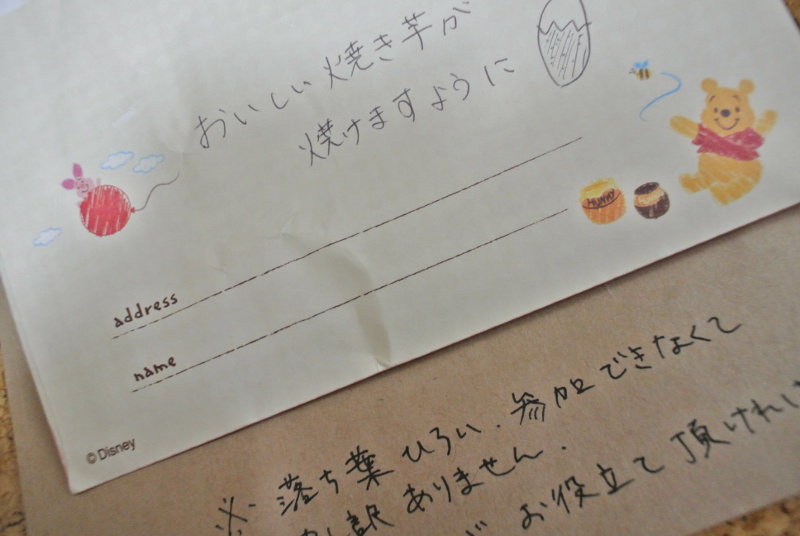 おいしい焼き芋が
焼けますように
HUNNY
address
name
© Disney
※落ち葉ひろい、参加できなくて
訳ありません。
お役立て頂けれ